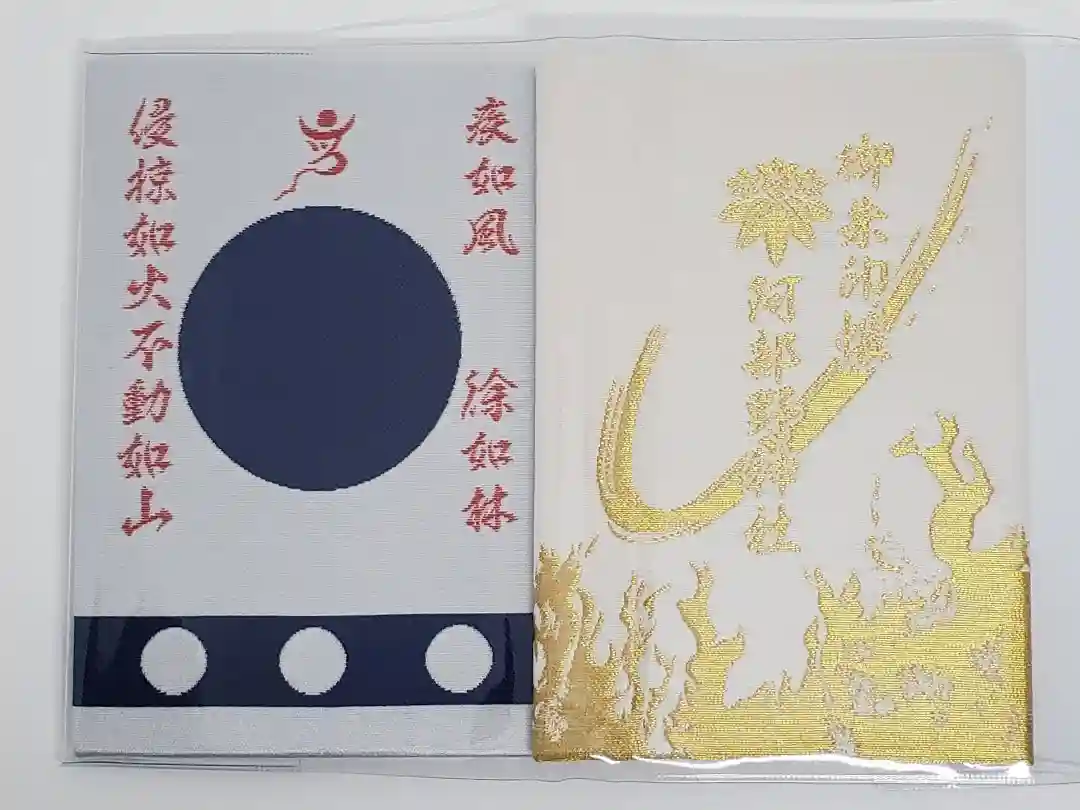 御朱印帳
阿部野神社
疾如風 徐如林
侵掠如火不動如山